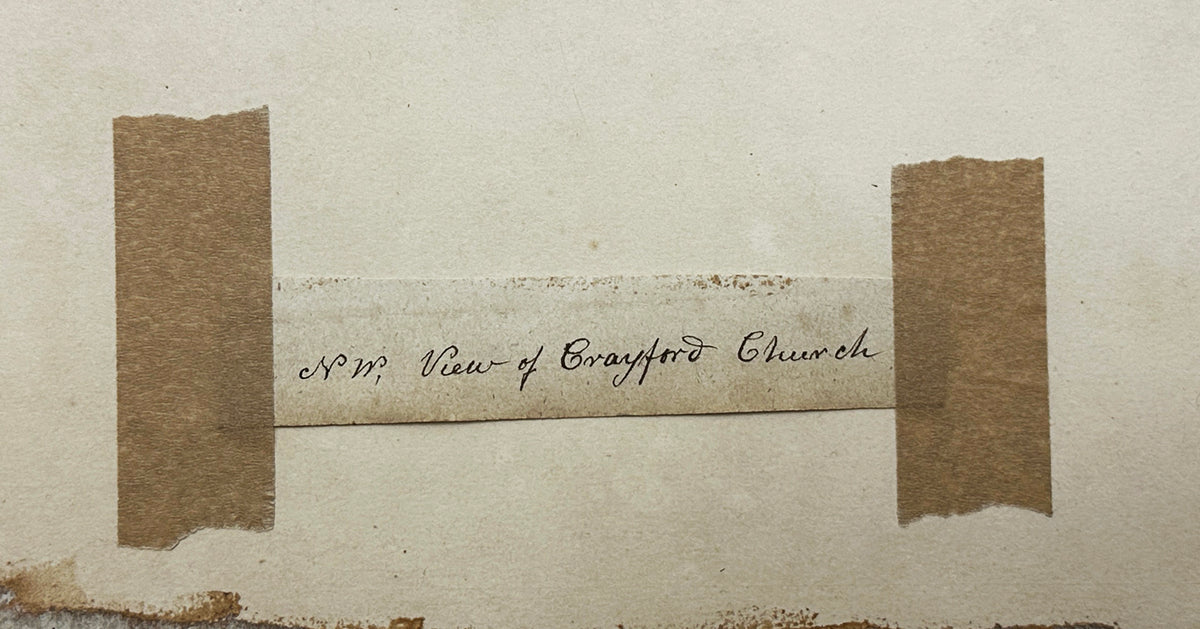 N W, View of Crayford Church